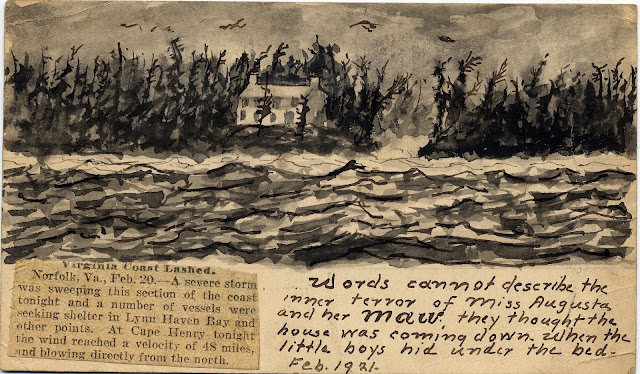 Virginia Coast Lashed.
Norfolk, Va., Feb. 20.—A severe storm
was sweeping this section of the coast
tonight and a number of vessels were
seeking shelter in Lynn Haven Bay and
other points. At Cape Henry tonight
the wind reached a velocity of 48 miles,
and blowing directly from the north.
Words cannot describe the
inner terror of Miss Augusta
and her maw, they thought the
house was coming down. When the
little boys hid under the bed-
Feb. 1921.